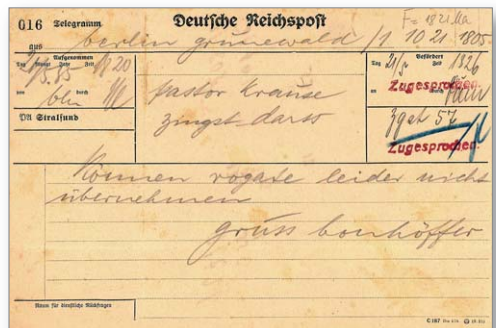 016 Telegramm Deutsche Reichspost
aus berlin grünewald /1 10 21 1805
Aufgenommen
Tag Monat Jahr Zeit
1820
von durch
bln
TA Stralsund
pastor krause
zingst-darss
Befördert
Tag Zeit
21/5 1826
an durch
Zugesprochen
Zugesprochen
können rogate leider nicht
übernehmen
gruss bonhöffer
Raum für dienstliche Rückfragen
C 187